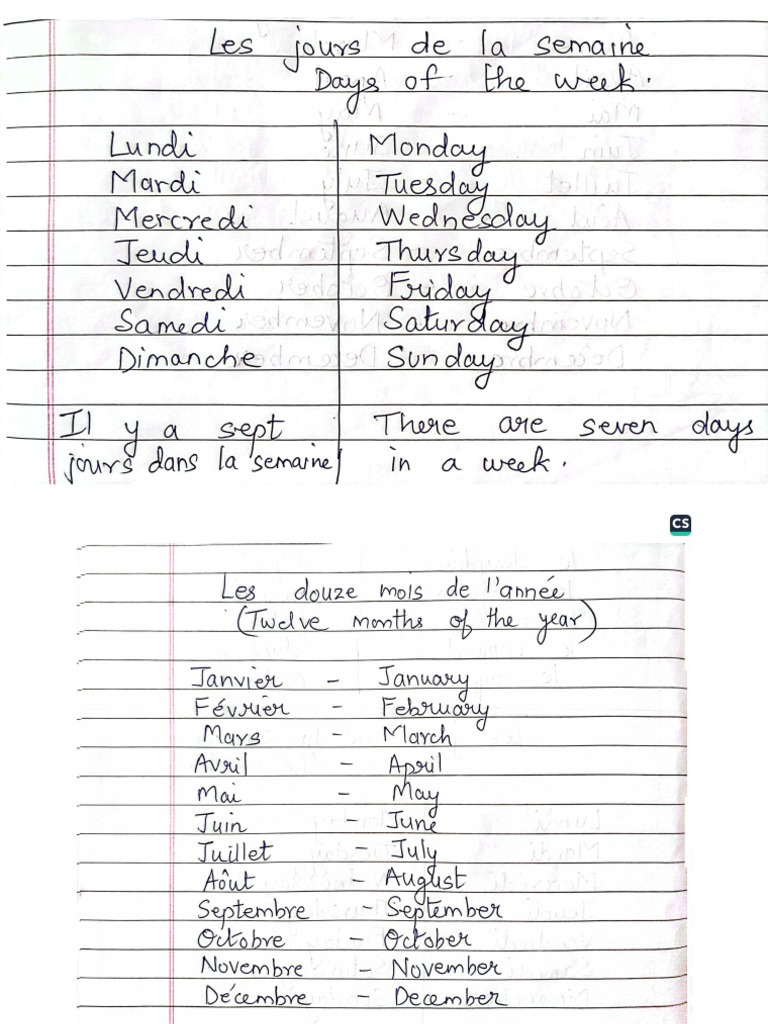 Les jours de la semaine
Days of the week.
Lundi Monday
Mardi Tuesday
Mercredi Wednesday
Jeudi Thursday
Vendredi Friday
Samedi Saturday
Dimanche Sunday
Il y a sept There are seven days
jours dans la semaine in a week.
CS
Les douze mois de l'année
(Twelve months of the year)
Janvier - January
Février - February
Mars - March
Avril - April
Mai - May
Juin - June
Juillet - July
Aôut - August
Septembre - September
Octobre - October
Novembre - November
Décembre - December